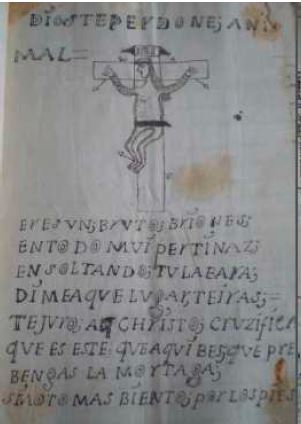 DIOSTEPERDONE; ANI
MAL=
ERES UN; BRUTO; BRIONES;
ENTODO MUI PERTINAZ;
EN SOLTANDO; TU LA
DIMEAQUE LUGAR, TE IRAS;=
TE JURO; A CHRISTO; CRUZIFICA
QUE ES ESTE; QUE AQUI BES; QUE PRE
BENGAS LA MORTAGA;
MAS BIENTO; POR LOS PIES